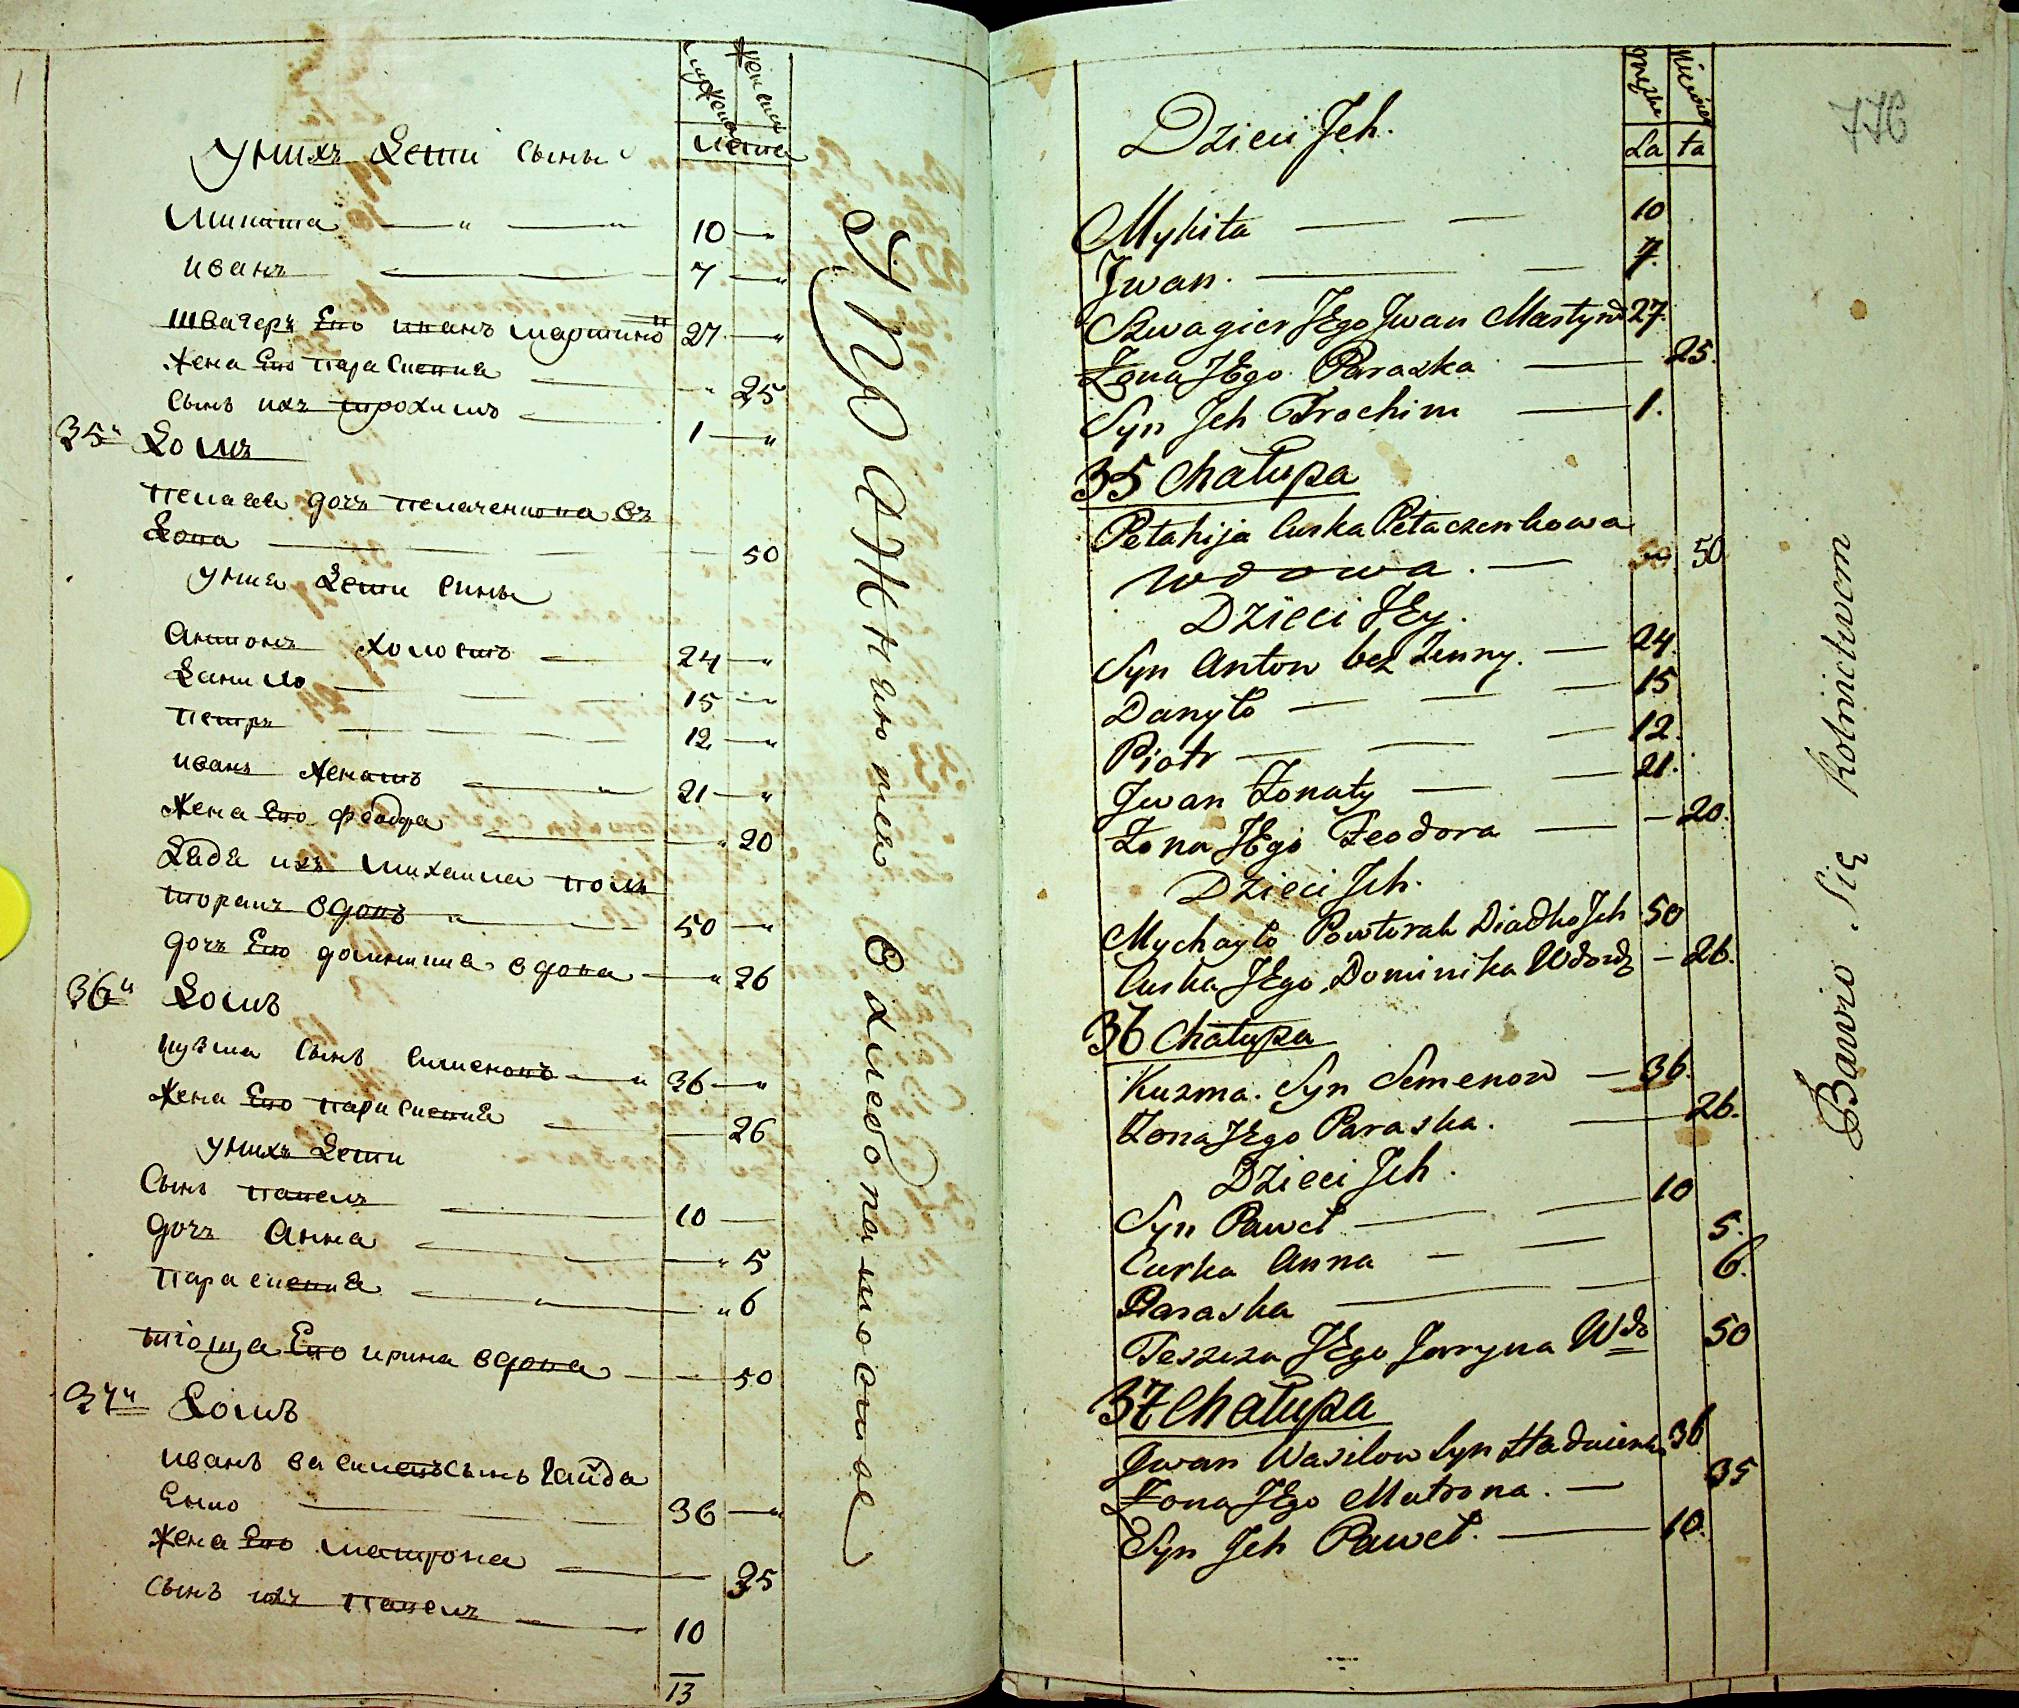 мужеска женска
лета
у нихъ дети сыны
Микита 10
иванъ 7
швагеръ Его иванъ мартиновъ 27
жена Его Параскевия 25
сынъ ихъ трохимъ 1
35" домъ
Пелагея дочъ Пелаченкова въ
дова 50
у ниа дети сины
Антонъ холостъ 24
данило 15
петръ 12
иванъ женатъ 21
жена Его феодора 20
дядя ихъ михаила Пов
торакъ вдовъ 50
дочъ Его доминика вдова 26
36" домъ
кузма сынъ сименовъ 36
жена Его Параскевия 26
у нихъ дети
сынъ павелъ 10
дочъ Анна 5
Параскевия 6
тіоща Его ирина вдова 50
37" домъ
иванъ василевъ сынъ гайда
Енко 36
жена Его матрона 35
сынъ ихъ павелъ 10
13
Упражняются Вхлебопашостве
776
La ta
Dzieci Jch.
Mykita 10
Jwan. 7.
Szwagier JEgo Jwan Martynów 27.
Żona JEgo Paraska 25.
Syn Jch Trochim 1.
35 Chałupa
Pełahija Curka Pełaczenkowa
wdowa. 50
Dzieci JEy.
Syn Anton bez Żenny. 24
Danyło 15
Piotr 12.
Jwan Żonaty 21.
Żona JEgo Teodora 20.
Dzieci Jch.
Mychayło Powtorak Diadko Jch 50
Curka JEgo Dominika Wdowa 26.
36 Chałupa
Kuzma. Syn Semenow 36.
Żona JEgo Paraska. 26.
Dzieci Jch.
Syn Paweł 10
Curka Anna 5.
Paraska 6.
Teszcza JEgo Jerryna Wdo 50
37 Chałupa
Jwan Wasilow Syn Hadaienko 36
Żona JEgo Matrona. 35
Syn Jch Paweł. 10.
Bawio się Rolnictwem